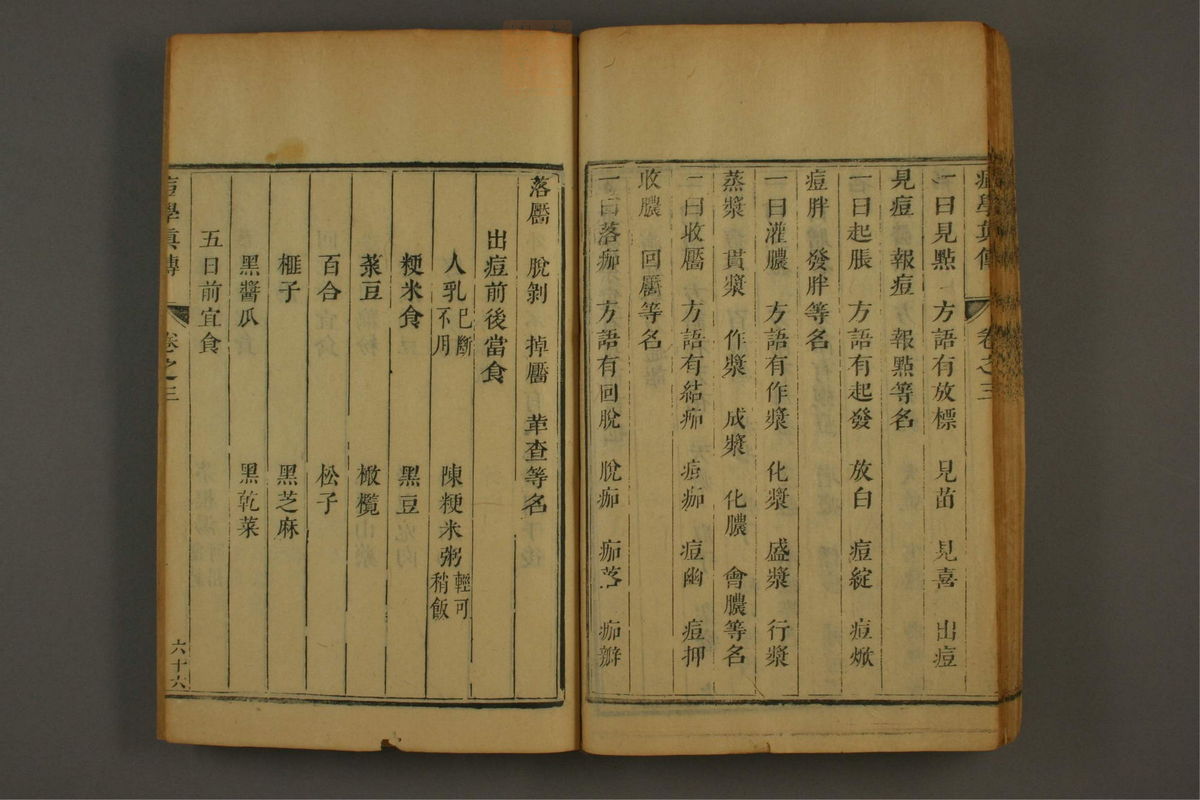 痘學真傳 卷之三
一曰見點 方語有放標 見苗 見喜 出痘
見痘 報痘 報點等名
一曰起脹 方語有起發 放白 痘綻 痘焮
痘胖 發胖等名
一曰灌膿 方語有作漿 化漿 盛漿 行漿
蒸漿 貫漿 作漿 成漿 化膿 會膿等名
一曰收靨 方語有結痂 痘痂 痘幽 痘押
收膿 回靨等名
一曰落痂 方語有回脫 脫痂 痂落 痂瓣
落靨 脫剝 掉靨 革查等名
出痘前後當食
人乳 已斷不用 陳粳米粥 輕可稍飯
粳米食 黑豆
菉豆 橄欖
百合 松子
榧子 黑芝麻
黑醬瓜 黑乾菜
五日前宜食
痘學真傳 卷之三 六十六